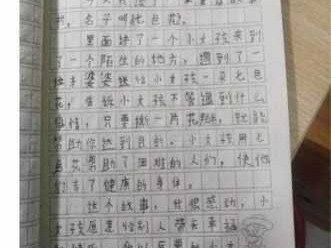 书，名子叫《七色花》。
里面讲了一个小女孩来到
了一个陌生的地方，遇到了一
位老婆婆送给小女孩一朵七色
花，告诉小女孩不管遇到什么
事情，只要撕一片花瓣，就能
帮助你达到目的，小女孩用七
色花帮助了困难的人们，使他
们有了健康的身体。
这个故事，我很感动，小
女孩愿意给别人带去幸福